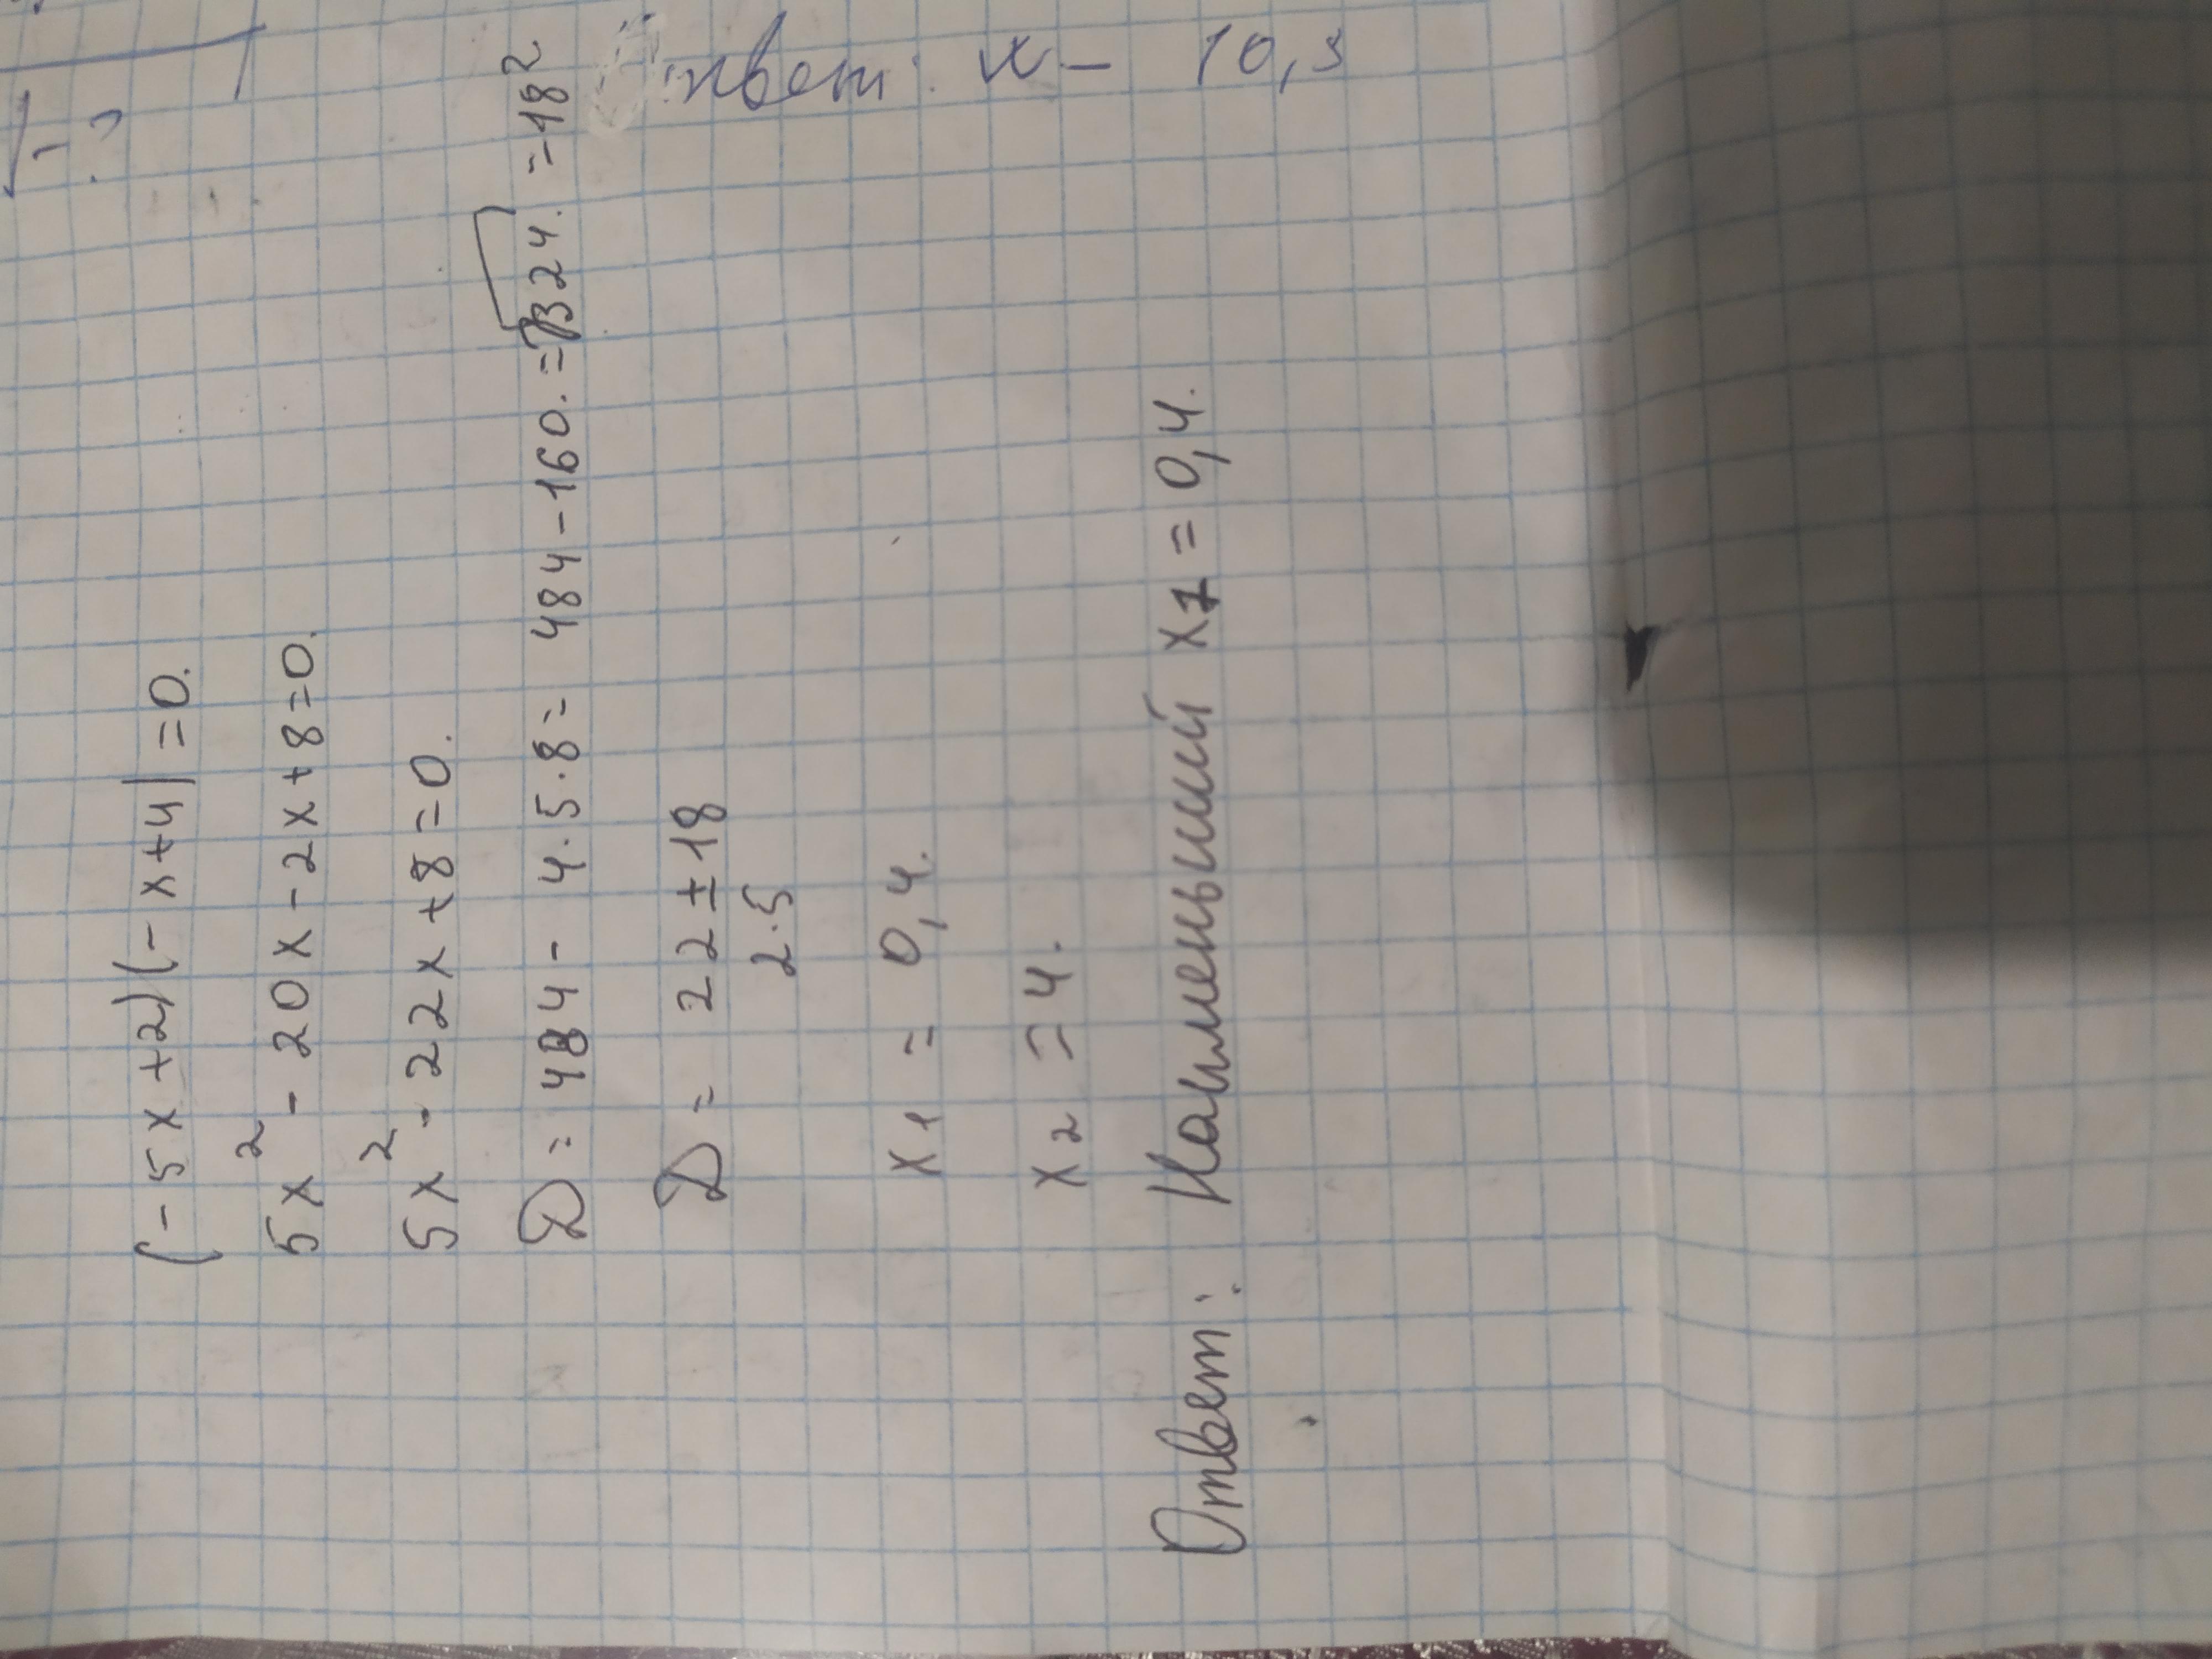 (-5x+2)(-x+4)=0.
5x² - 20x - 2x + 8 = 0.
5x² - 22x + 8 = 0.
D = 484 - 4·5·8 = 484 - 160. = √324. = 18²
D = 22±18
2·5
x1 = 0,4.
x2 = 4.
Ответ: Наименьший x1 = 0,4.
x - 10,3